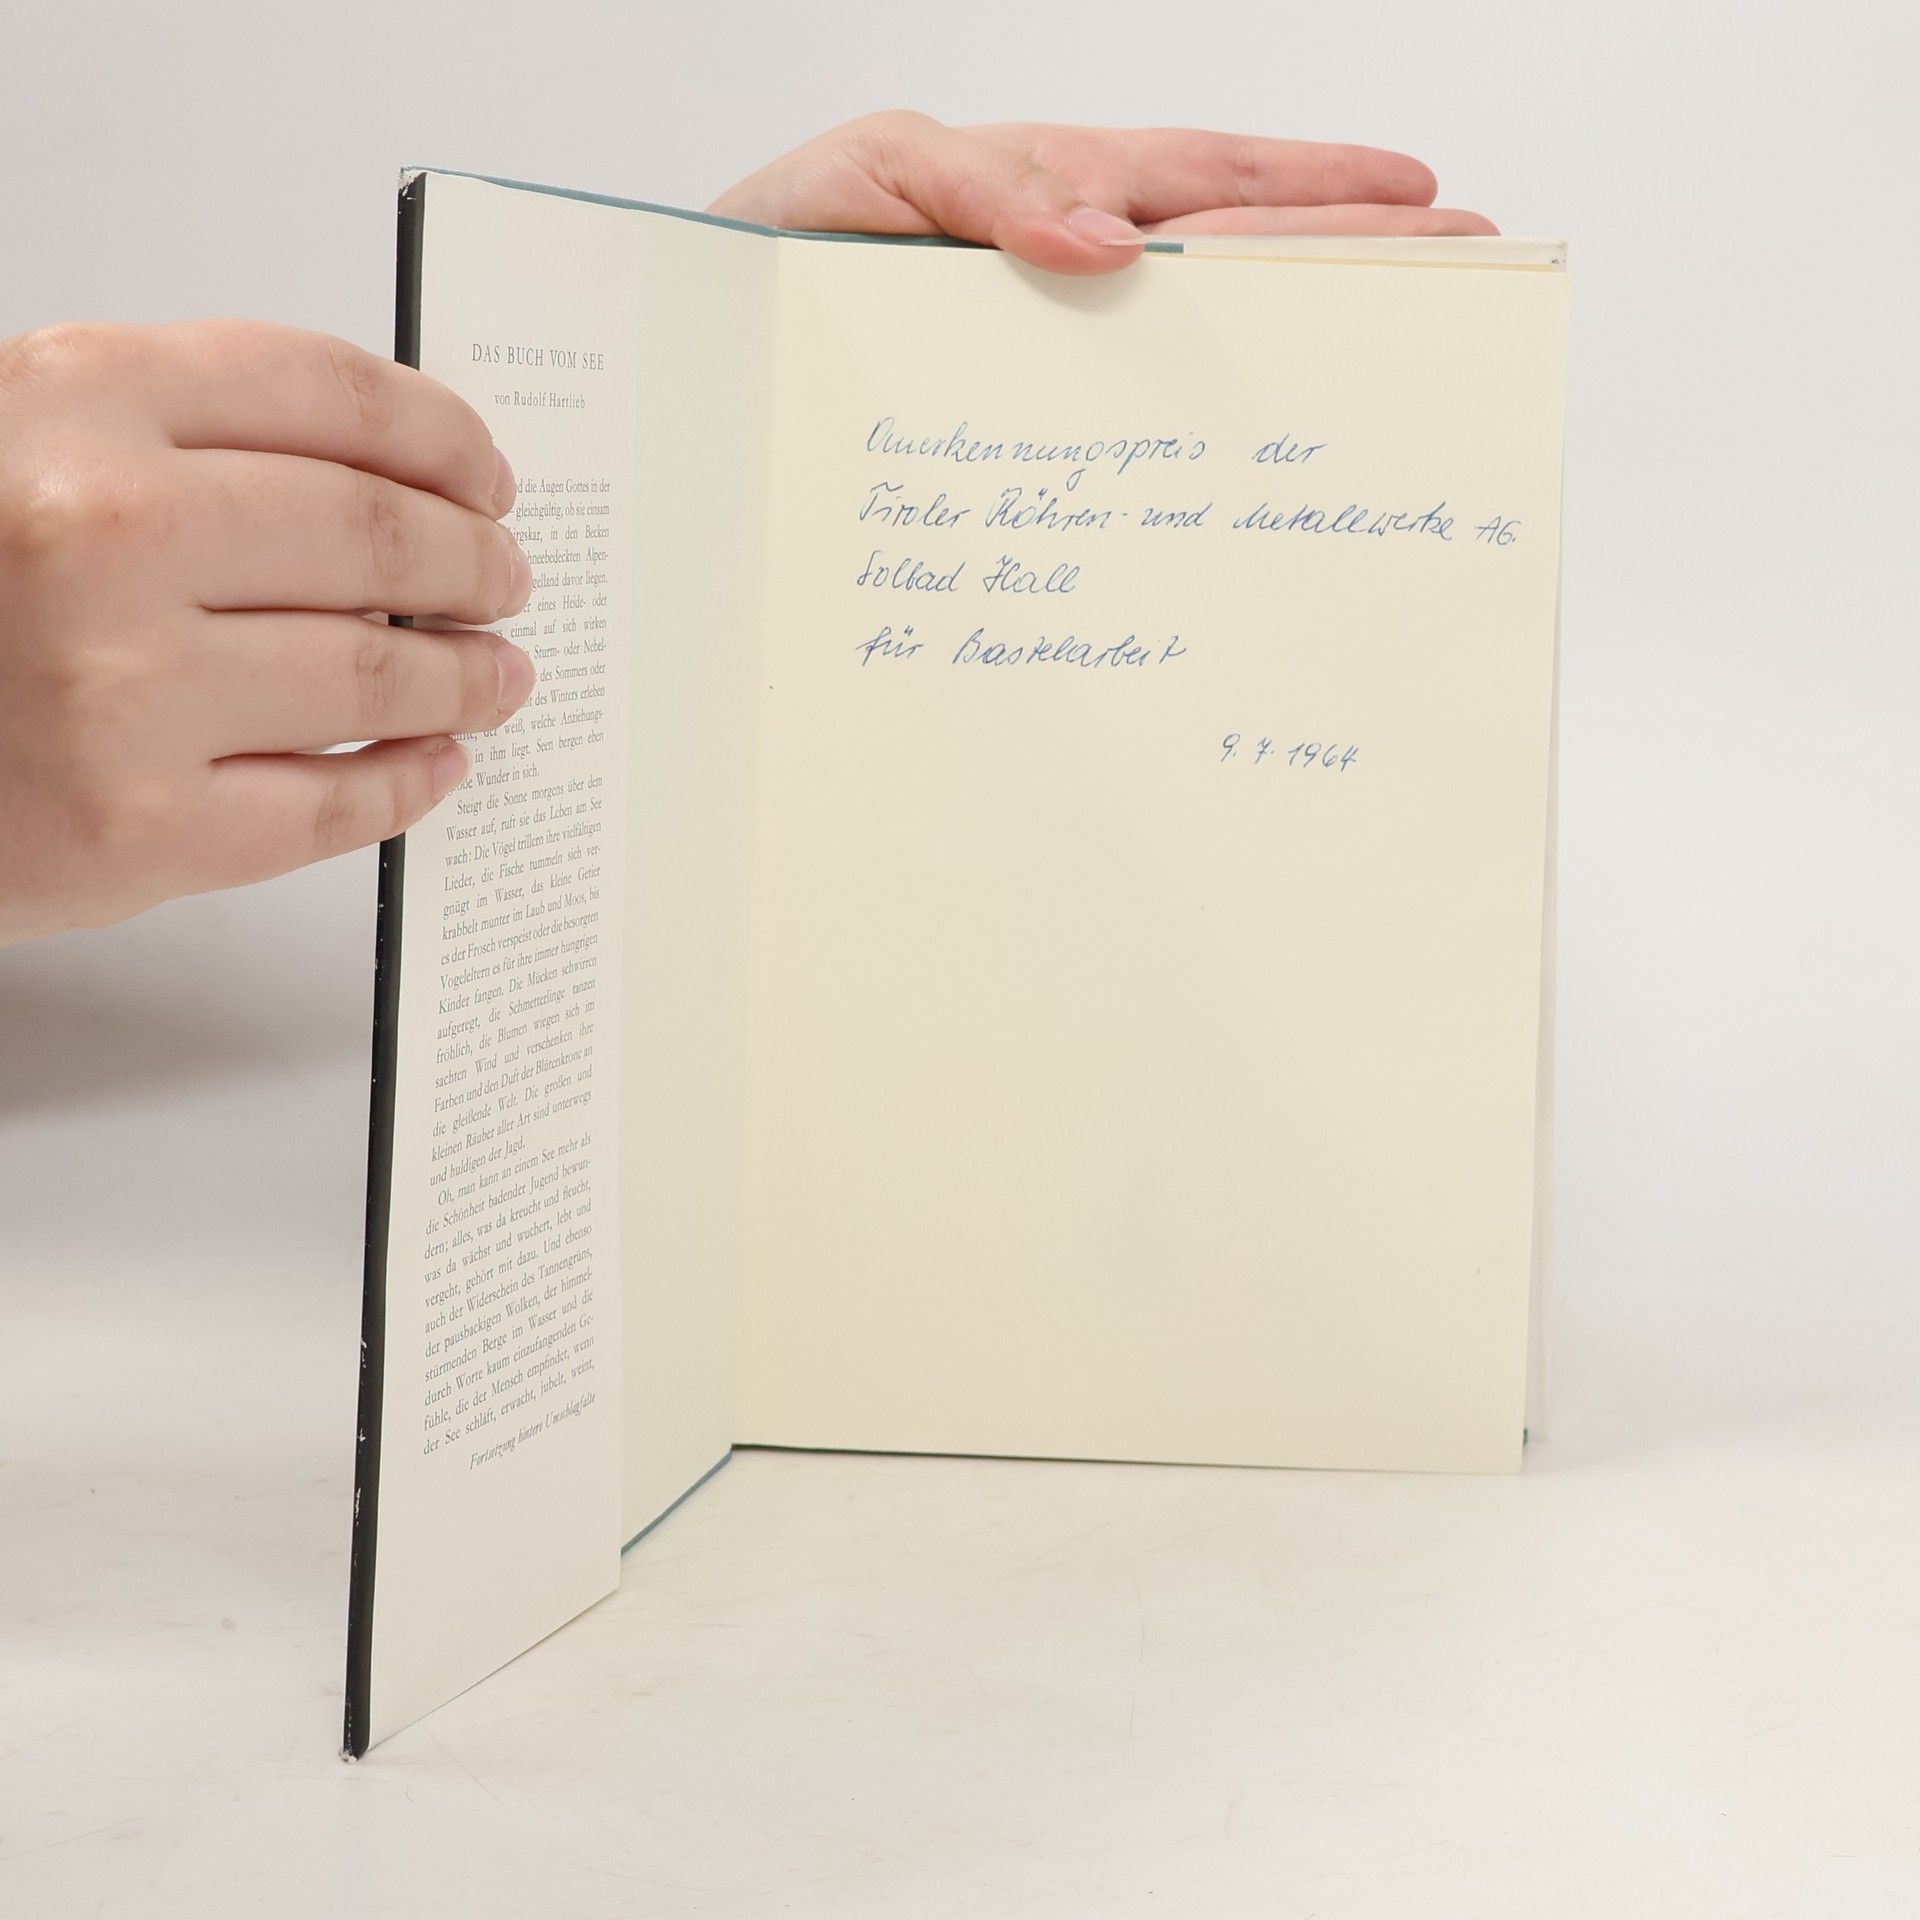 DAS BUCH VOM SEE
von Rudolf Hartlieb
die Augen Gottes in der
– gleichgültig, ob sie einsam
in den Becken
Alpen-
davor liegen.
eines Heide- oder
einmal auf sich wirken
Sturm- oder Nebel-
des Sommers oder
des Winters erleben
der weiß, welche Anziehungs-
in ihm liegt. Seen bergen eben
Wunder in sich.
Steigt die Sonne morgens über dem
Wasser auf, ruft sie das Leben am See
wach: Die Vögel trillern ihre vielfältigen
Lieder, die Fische tummeln sich ver-
gnügt im Wasser, das kleine Getier
krabbelt munter im Laub und Moos, bis
es der Frosch verspeist oder die besorgten
Vogeleltern es für ihre immer hungrigen
Kinder fangen. Die Mücken schwirren
aufgeregt, die Schmetterlinge tanzen
fröhlich, die Blumen wiegen sich im
sachten Wind und verschenken ihre
Farben und den Duft der Blütenkrone an
die gleißende Welt. Die großen und
kleinen Räuber aller Art sind unterwegs
und huldigen der Jagd.
Oh, man kann an einem See mehr als
die Schönheit badender Jugend bewun-
dern; alles, was da kreucht und fleucht,
was da wächst und wuchert, lebt und
vergeht, gehört mit dazu. Und ebenso
auch der Widerschein des Tannengrüns,
der pausbackigen Wolken, der himmel-
stürmenden Berge im Wasser und die
durch Worte kaum einzufangenden Ge-
fühle, die der Mensch empfindet, wenn
der See schläft, erwacht, jubelt, weint,
Fortsetzung hintere Umschlagfalte
Anerkennungspreis der
Tiroler Röhren- und Metallwerke AG.
Solbad Hall
für Bastelarbeit
9. 7. 1964